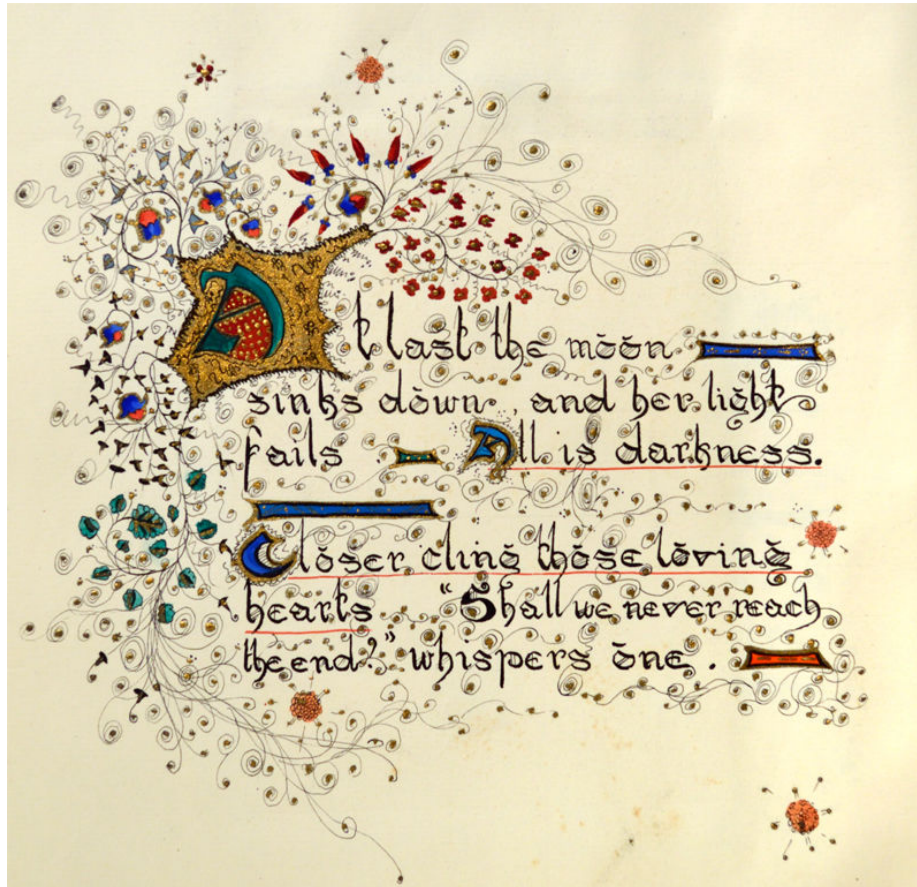 At last the moon
sinks down, and her light
fails All is darkness.
Closer cling those loving
hearts "Shall we never reach
the end?" whispers one.